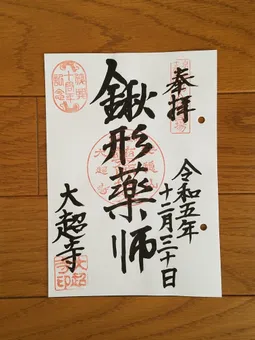 奉拝
令和五年
十二月三十日
鍬形薬師
大超寺